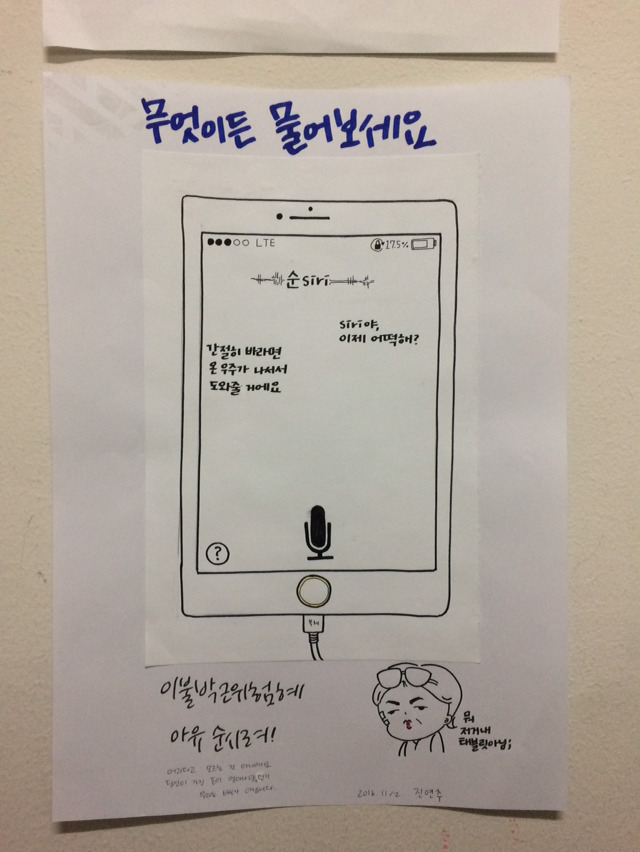 무엇이든 물어보세요
LTE
17.5%
순siri
siri야,
이제 어떡해?
간절히 바라면
온 우주가 나서서
도와줄 거에요
?
이불박근위험혜
아유 순시려!
뭐
저거내
태블릿아님;
어리다고
2016.11/2 진연주